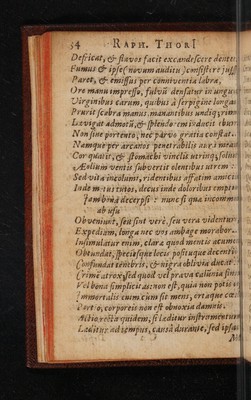 54 RAPH. THORI
Defricat, & flavos facit excandescere dentes
Fumus & ipse (novum auditu) consistere
Paret, & emissus per conniventia labra,
Oro manu impresso, fulvū densatur in
Virginibus carum, quibus à serpigine
Prurit scabra manus, manantibus undiq;
Lævigat admotū, & splendorem inducit
Non sine portento, nec parvo gratia constat.
Namque per arcanos penetrabilis
Cor quatit, & stomachi vinclis utring;
Æolium ventis subvertit olentibus utrem
Sed vita incolumi, ridentibus affatim amicis
Inde metus,
decerpsi: nunc si qua
ab usu
Obveniunt, seu sint verè, seu vera videntur
Expediam, longa nec vos ambage morabor.
Insimulatur enim, claræ quod mentis acumen
Obtundat, speciesque locis positasque decenti
Confundat tenebris, & nigra oblivia ducat.
Crimē atrox, sed quod vel prava calūnia
Vel bona simplicitas: non est, quia non potis
Immortalis cum sit mens, ortaque
corporeis non est obnoxia damnis.
Actio recta quidem, si leditur instrumentum
Læditur ad tempus, causâ durante, sed